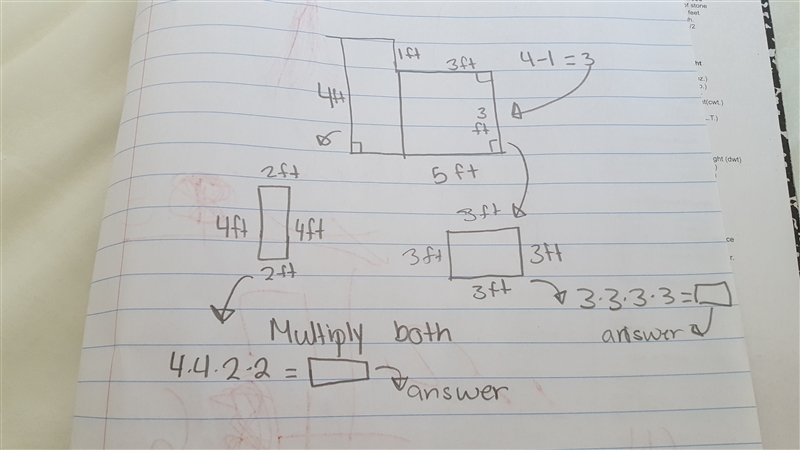 of stone
feet
1ft
3ft
4-1=3
4ft
3
ft
5ft
ght (dwt)
2ft
4ft
4ft
2ft
3ft
3ft
3ft
3ft
3·3·3·3=
answer
Multiply both
4·4·2·2 =
answer